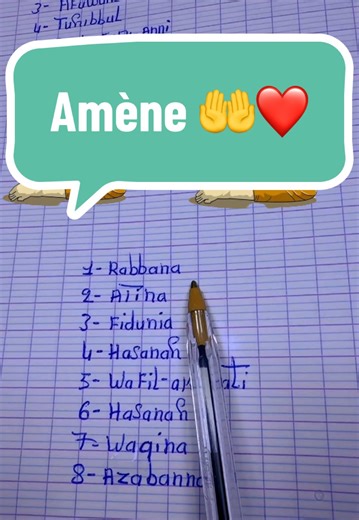 4- Tuhibbul
Amène 🤲❤️
1- Rabbana
2- Atina
3- Fidunia
4- Hasanah
5- WaFil-
6- Hasanah
7- Waqina
8- Azabanna